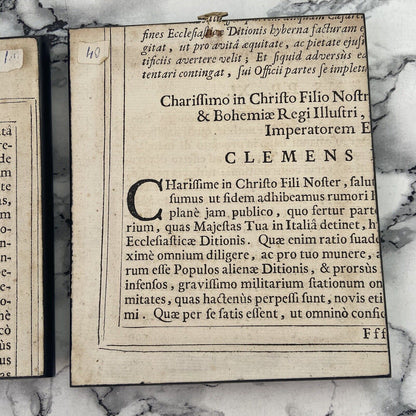 40
fines Ecclesiasticæ Ditionis hyberna facturam e
gitat, ut pro avitâ æquitate, ac pietate ejusm
tificiis avertere velit; Et siquid adversùs ea
tentari contingat, sui Officii partes se impletu
Charissimo in Christo Filio Nostr
& Bohemiæ Regi Illustri,
Imperatorem E
CLEMENS
CHarissime in Christo Fili Noster, salut
sumus ut fidem adhibeamus rumori h
planè jam publico, quo fertur parte
rium, quas Majestas Tua in Italiâ detinet, h
Ecclesiasticæ Ditionis. Quæ enim ratio suade
ximè omnium diligere, ac pro tuo munere, a
rum esse Populos alienæ Ditionis, & prorsùs
insensos, gravissimo militarium stationum on
mitates, quas hactenùs perpessi sunt, novis eti
mi. Quæ per se satis essent, ut omninò confid
Fff